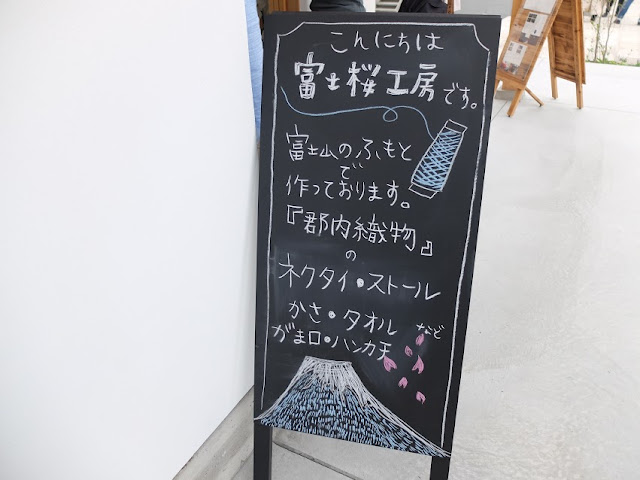 こんにちは
富士桜工房です。
富士山のふもと
で
作っております。
『郡内織物』
の
ネクタイ・ストール
かさ・タオル など
がま口・ハンカチ